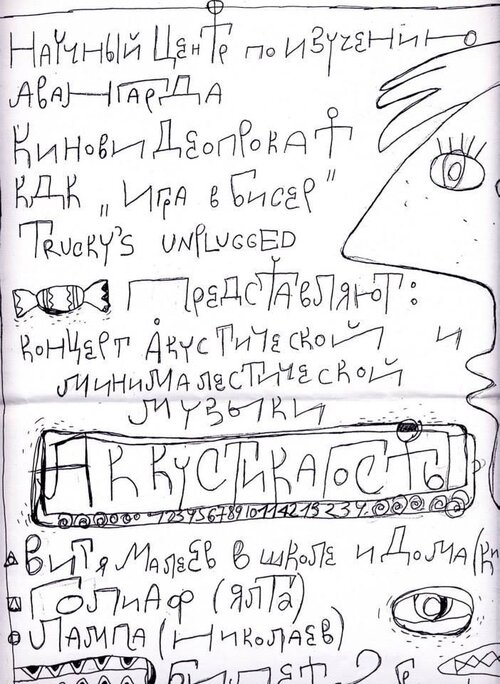 Научный Центр по изучению
Авангарда
Киновидеопрокат
КДК „Игра в бисер"
Trucky's unplugged
Представляют:
концерт Акустической и
минималестической
музыки
АККУСТИКАГОСТЬ
Витя Малеев в школе и Дома (Ки
Голиаф (Ялта)
Лампа (Николаев)